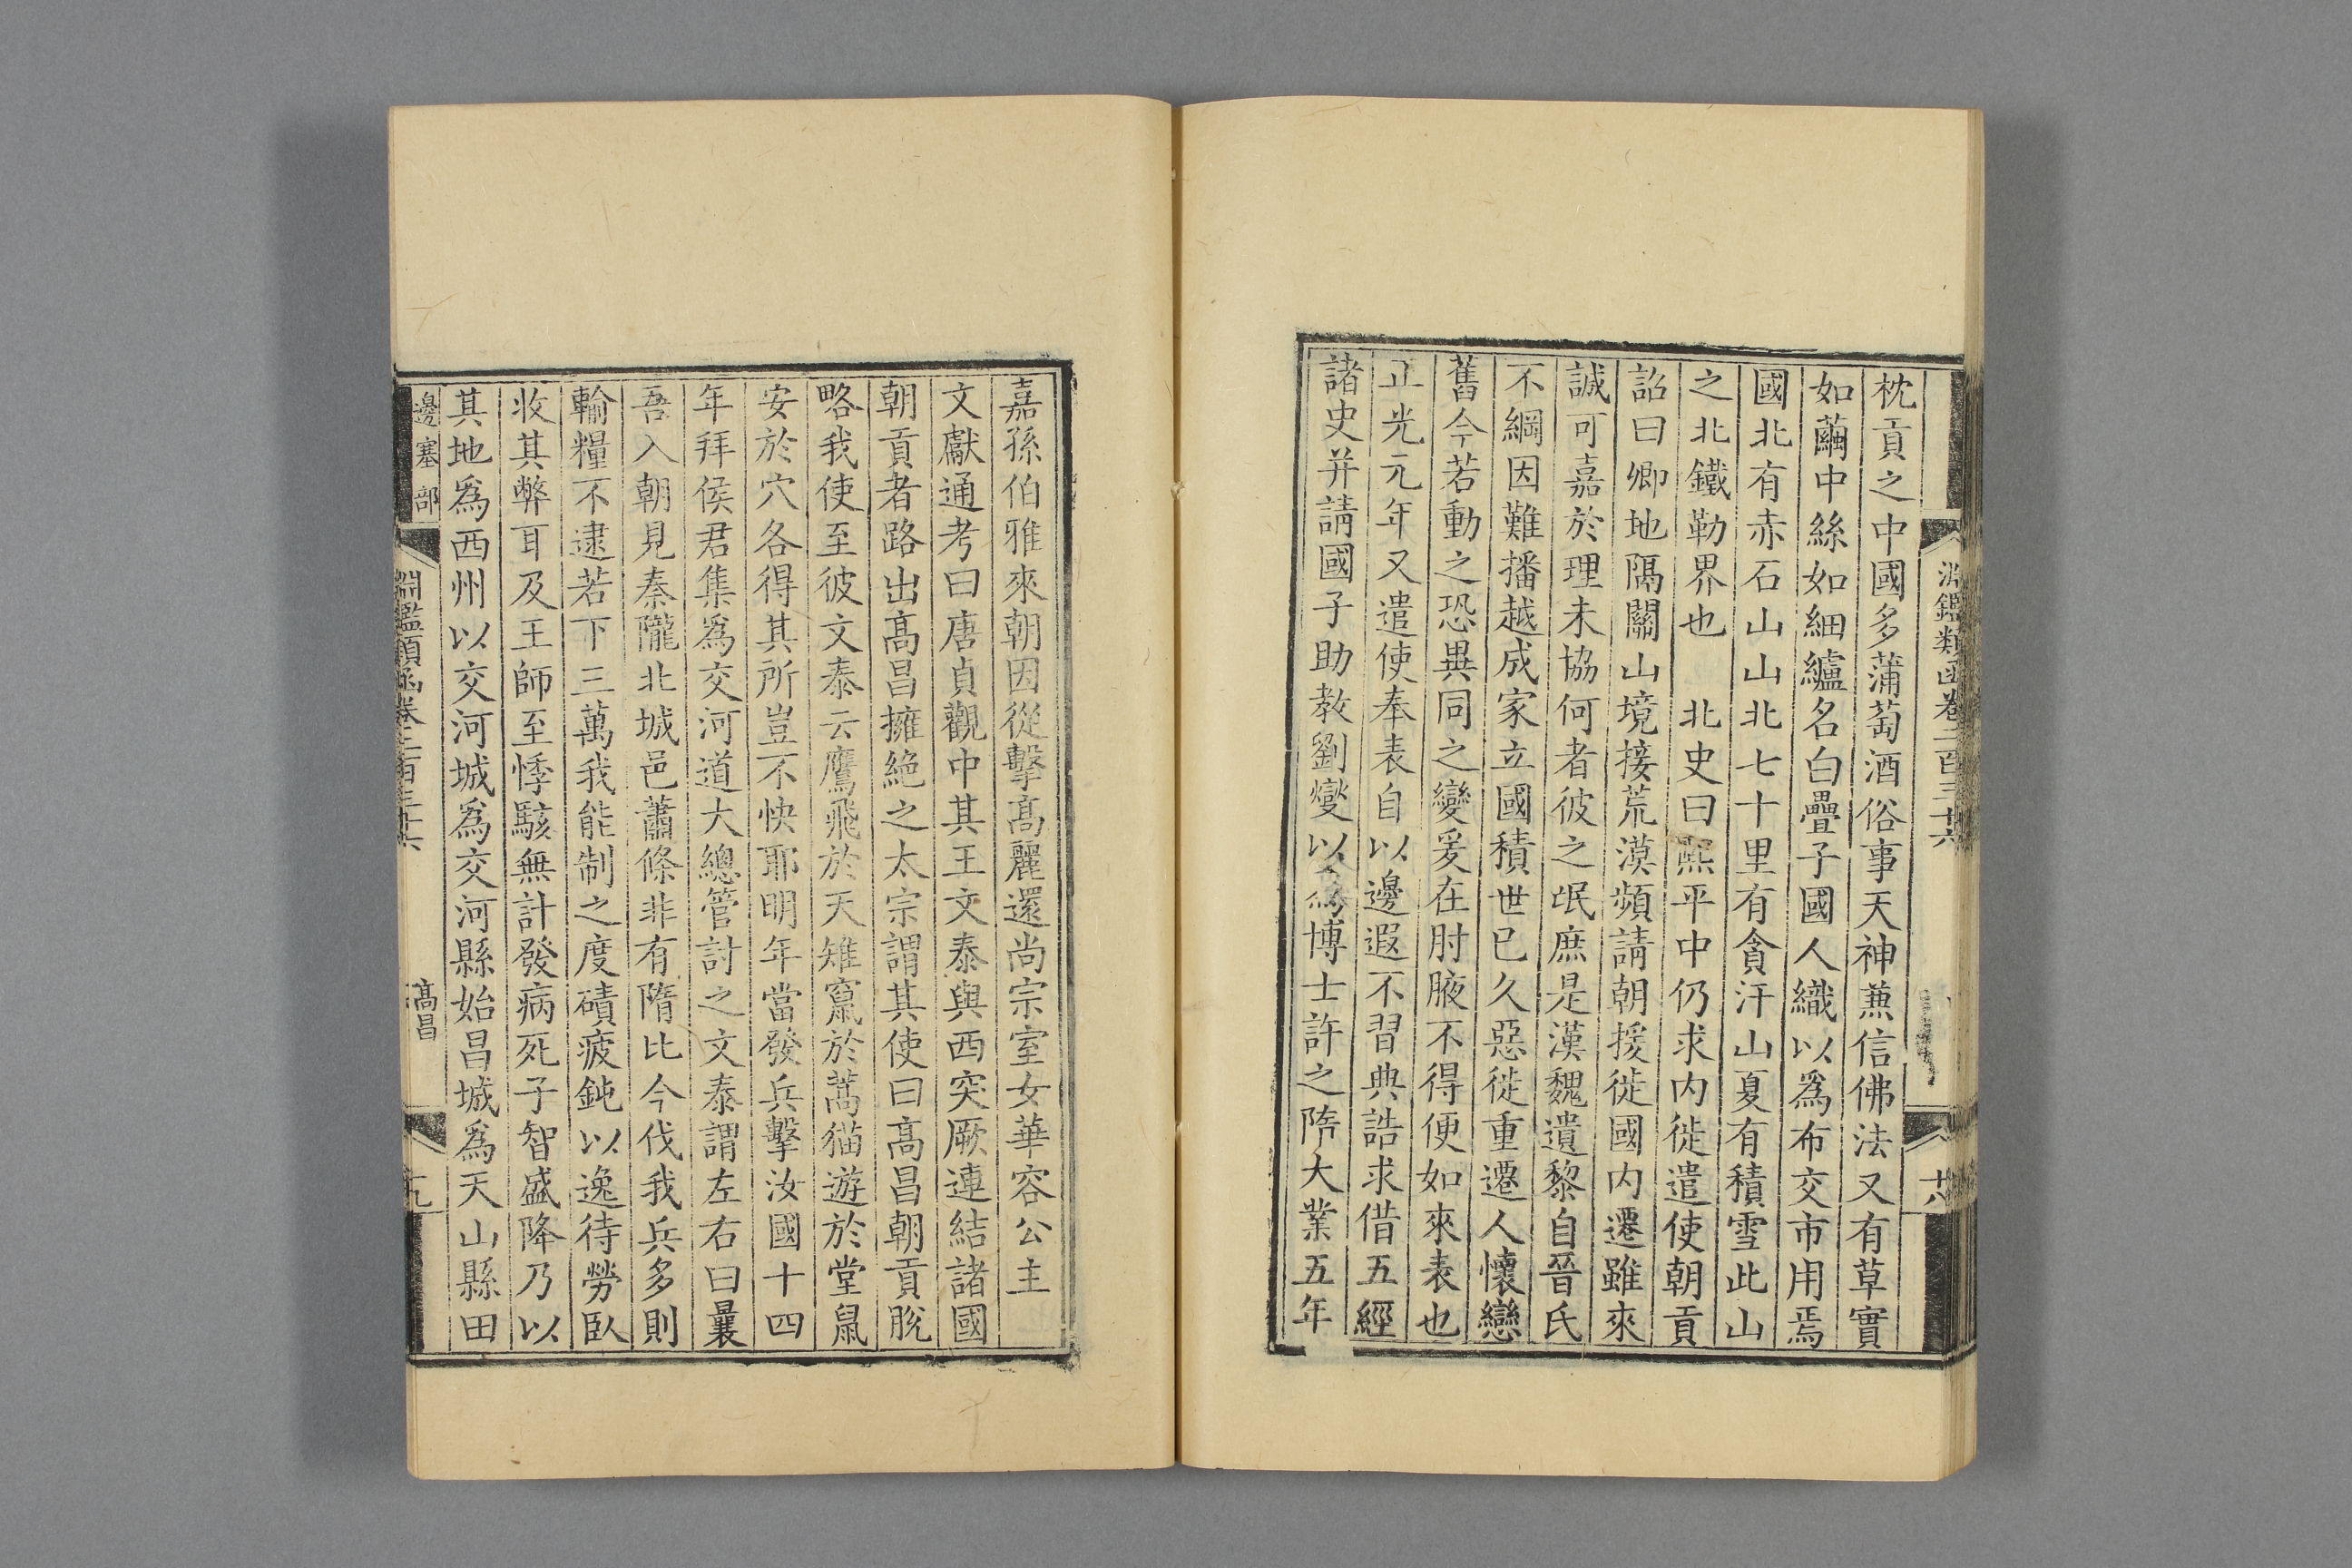 淵鑑類函卷二百三十六
十八
枕貢之中國多蒲萄酒俗事天神兼信佛法又有草實
如繭中絲如細纑名白疊子國人織以爲布交市用焉
國北有赤石山山北七十里有貪汗山夏有積雪此山
之北鐵勒界也 北史曰熙平中仍求内徙遣使朝貢
詔曰卿地隔關山境接荒漠頻請朝援徙國内遷雖來
誠可嘉於理未協何者彼之氓庶是漢魏遺黎自晉氏
不綱因難播越成家立國積世已久惡徙重遷人懷戀
舊今若動之恐異同之變爰在肘腋不得便如來表也
正光元年又遣使奉表自以邊遐不習典誥求借五經
諸史并請國子助教劉燮以爲博士許之隋大業五年
嘉孫伯雅來朝因從擊高麗還尚宗室女華容公主
文獻通考曰唐貞觀中其王文泰與西突厥連結諸國
朝貢者路出高昌擁絶之太宗謂其使曰高昌朝貢脫
略我使至彼文泰云鷹飛於天雉竄於蒿猫遊於堂鼠
安於穴各得其所豈不快耶明年當發兵擊汝國十四
年拜侯君集爲交河道大總管討之文泰謂左右曰曩
吾入朝見秦隴北城邑蕭條非有隋比今伐我兵多則
輸糧不逮若下三萬我能制之度磧疲鈍以逸待勞臥
收其弊耳及王師至悸駭無計發病死子智盛降乃以
其地爲西州以交河城爲交河縣始昌城爲天山縣田
邊塞部
淵鑑類函卷二百三十六
高昌
十九